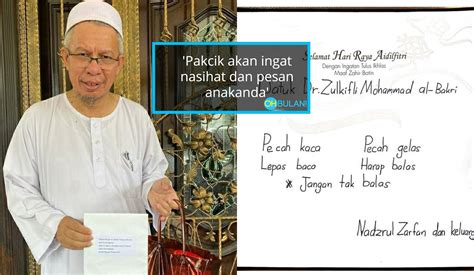 'Pakcik akan ingat
nasihat dan pesan
anakanda'
OHBULAN!
Selamat Hari Raya Aidilfitri
Dengan Ingatan Tulus Ikhlas
Maaf Zahir Batin
Datuk Dr. Zulkifli Mohammad al-Bakri
Pecah kaca Pecah gelas
Lepas baca Harap balas
* Jangan tak balas
Nadzrul Zarfan dan keluarg